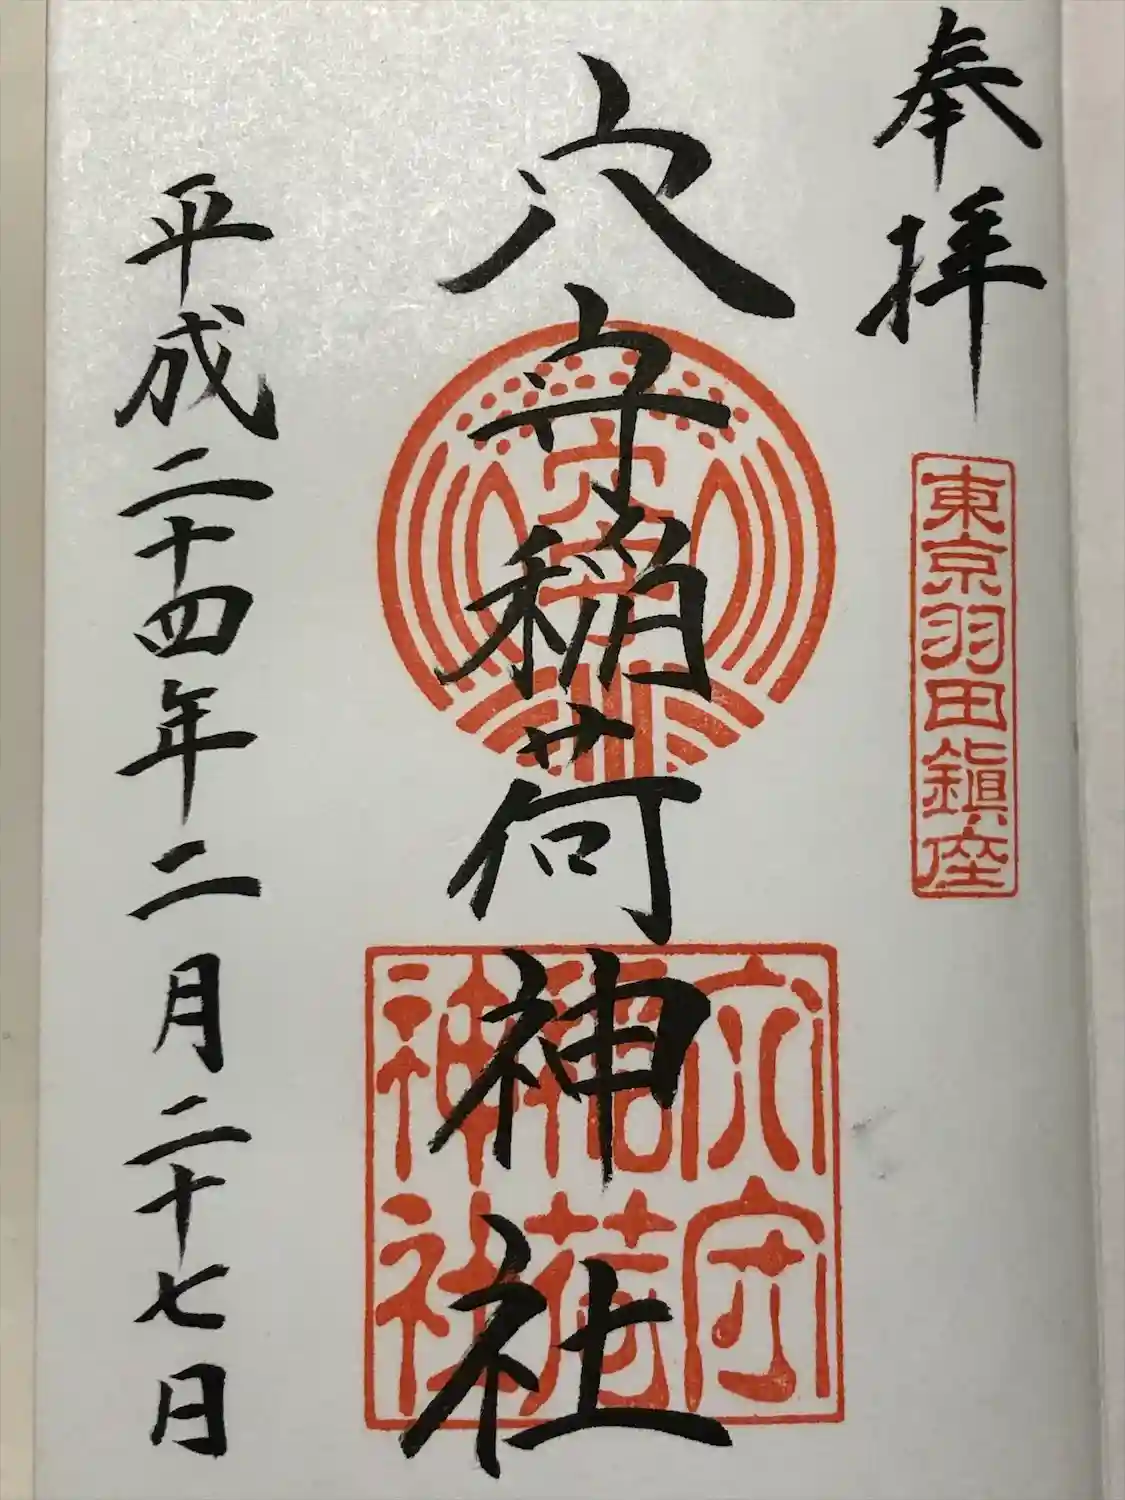 奉拝
東京羽田鎮座
穴守稲荷神社
穴守
穴守
稲荷
神社
平成二十四年二月二十七日